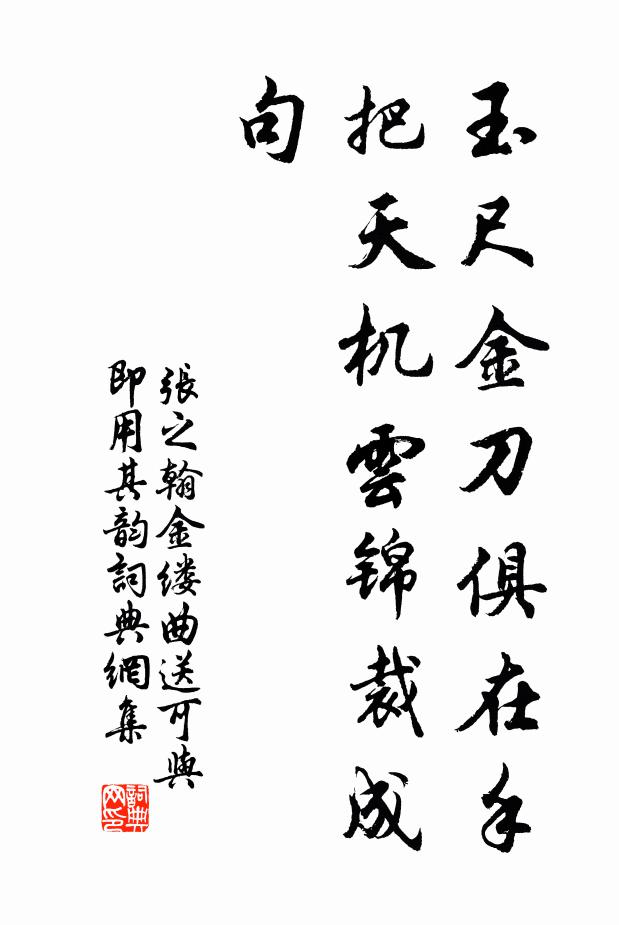 玉尺金刀俱在手
把天机雲锦裁成
句
張之翰金缕曲送可與
即用其韵詞典網集
詞典
网印